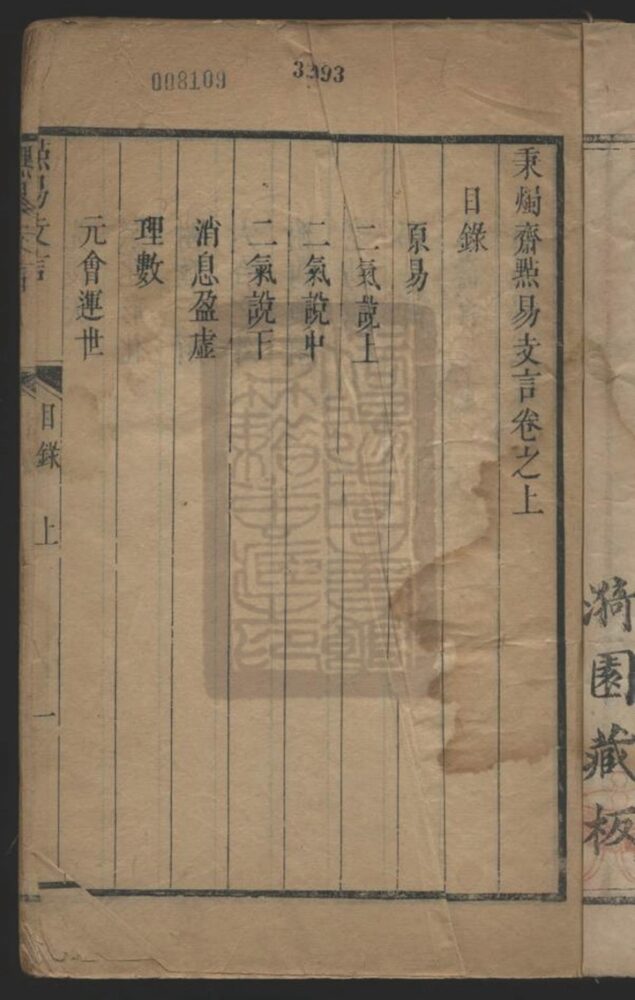 008109
3393
漪園藏板
秉燭齋點易支言卷之上
目錄
原易
二氣說上
二氣說中
二氣說下
消息盈虛
理數
元會運世
點易支言
目錄
上
一